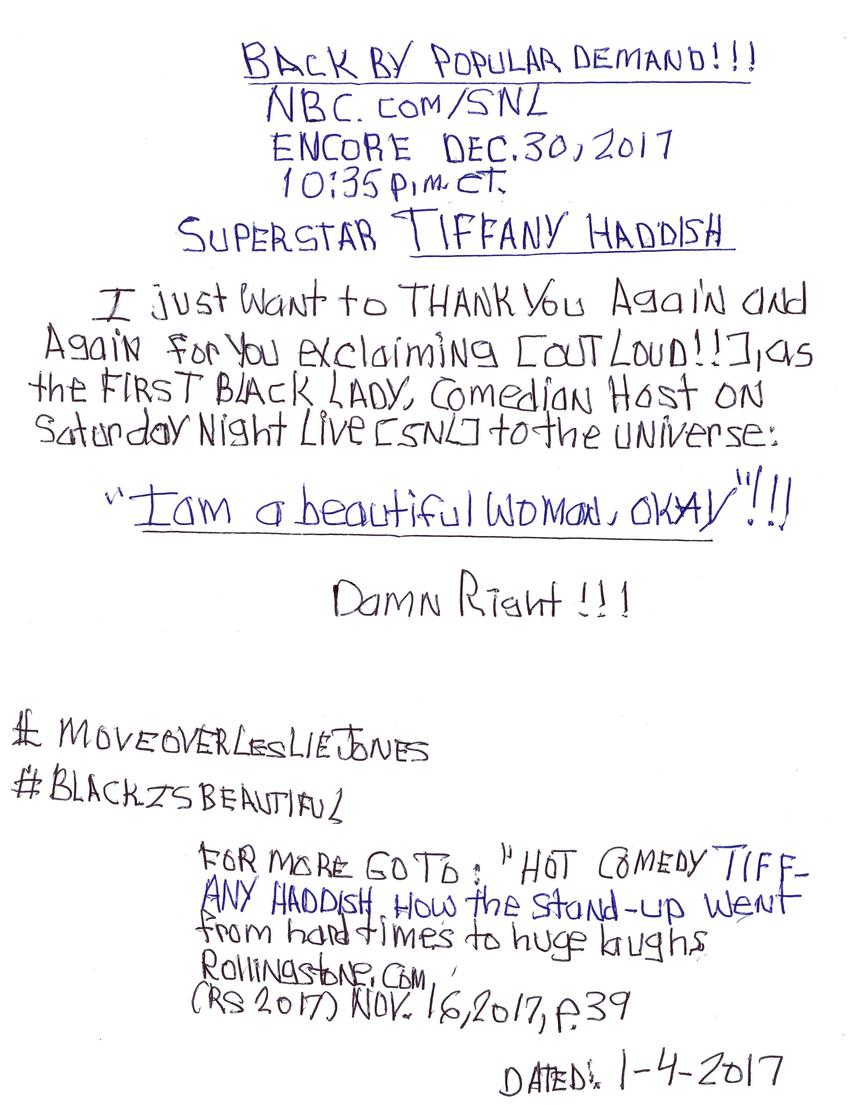 BACK BY POPULAR DEMAND!!!
NBC.COM/SNL
ENCORE DEC.30,2017
10:35 p.m. CT.
SUPERSTAR TIFFANY HADDISH
I just want to THANK YOU Again and
Again for you exclaiming [OUT LOUD!!], as
the FIRST BLACK LADY, Comedian Host ON
Saturday Night Live [SNL] to the UNIVERSE:
"I am a beautiful woman, OKAY"!!!
DAMN Right!!!
# MOVEOVERLESLIEJONES
#BLACKISBEAUTIFUL
FOR MORE GO TO: "HOT COMEDY TIFF-
ANY HADDISH. How the stand-up went
from hard times to huge laughs
Rollingstone.com,
(RS 2017) NOV. 16,2017, p.39
DATED: 1-4-2017